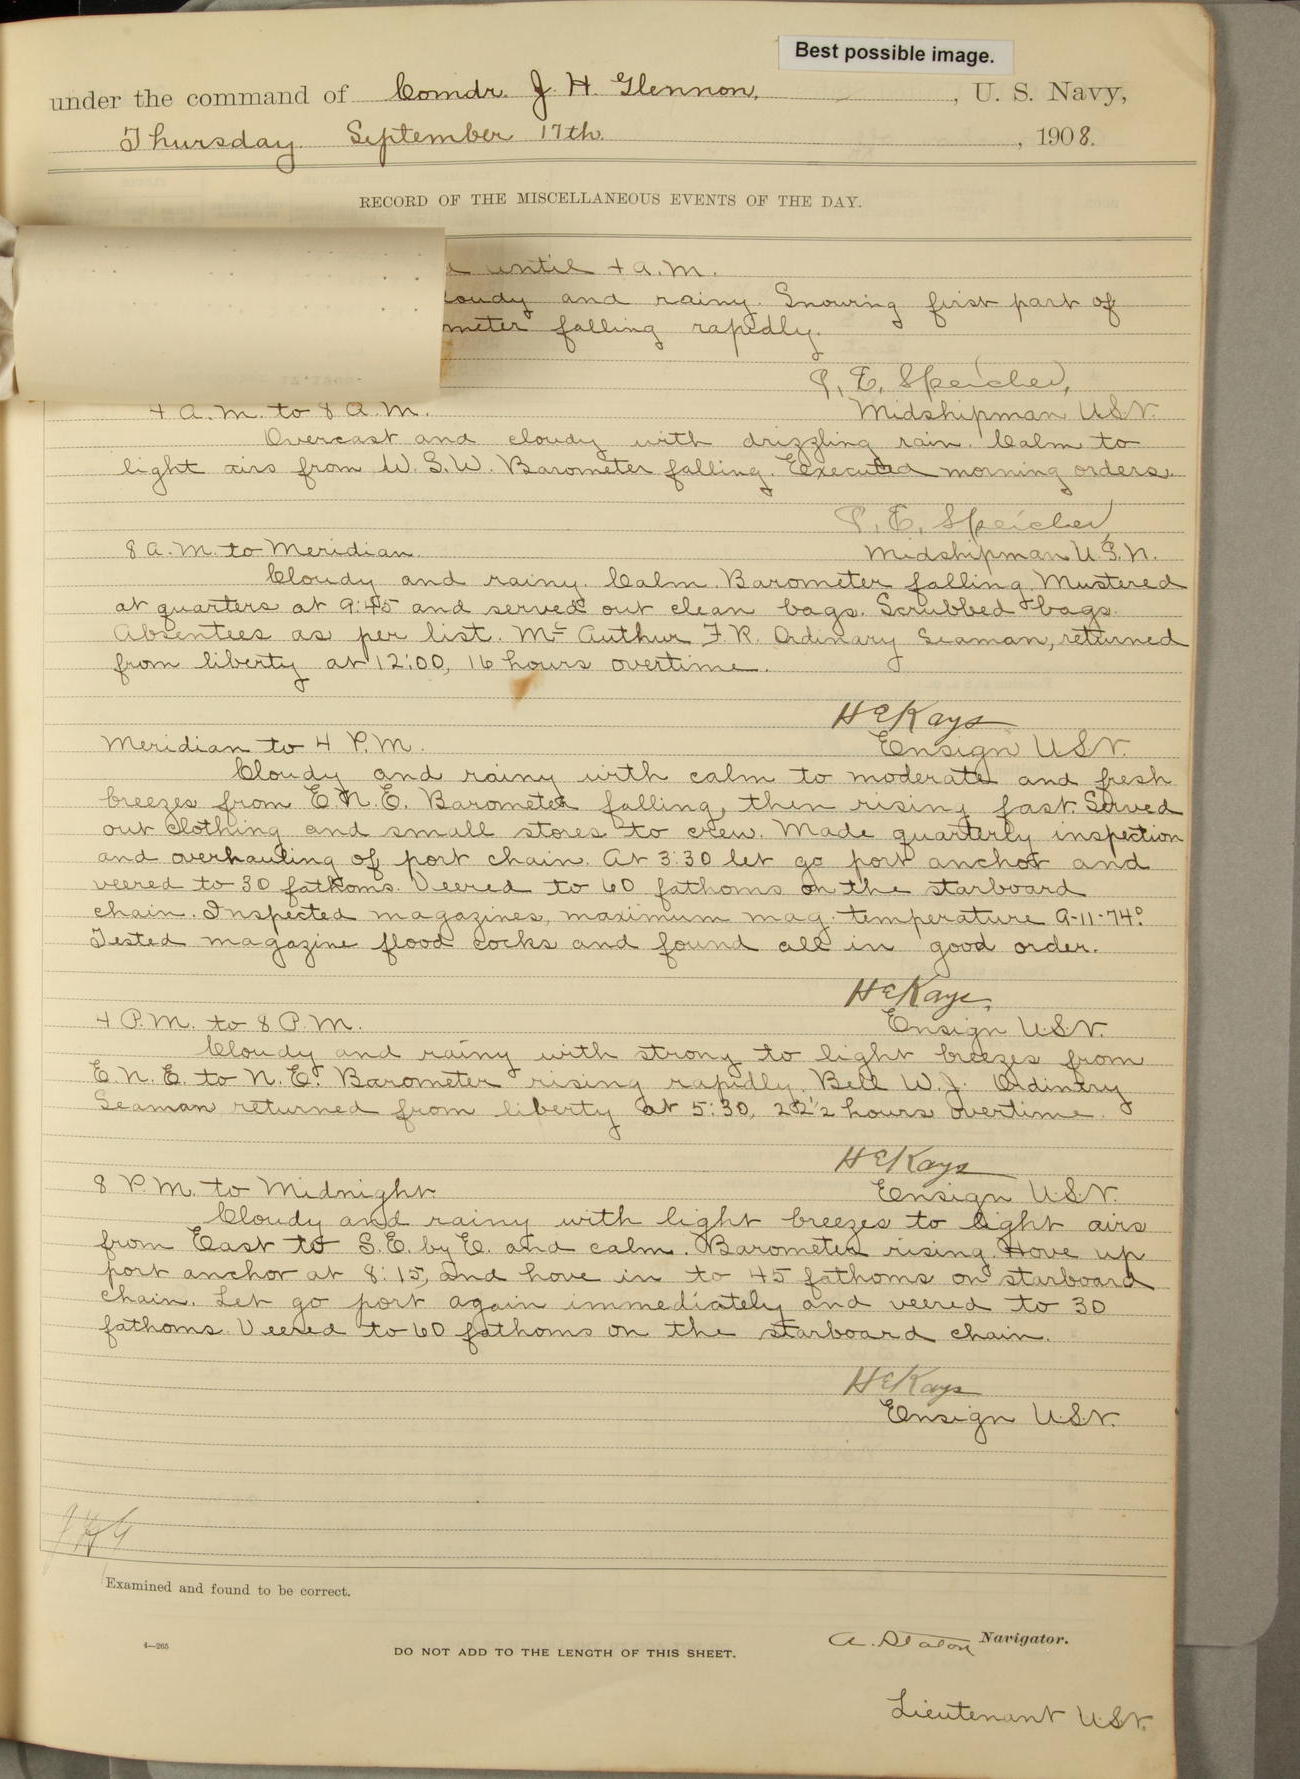 Best possible image.
under the command of Comdr. J. H. Glennon, , U. S. Navy,
Thursday. September 17th. , 1908.
RECORD OF THE MISCELLANEOUS EVENTS OF THE DAY.
until 4 a.m.
loudy and rainy. Snowing first part of
meter falling rapidly.
P. E. Speicher,
4 A.M. to 8 A.M. Midshipman U.S.N.
Overcast and cloudy with drizzling rain. Calm to
light airs from W.S.W. Barometer falling. Executed morning orders.
P. E. Speicher,
8 A.M. to Meridian. Midshipman U.S.N.
Cloudy and rainy. Calm. Barometer falling. Mustered
at quarters at 9:45 and served out clean bags. Scrubbed bags.
Absentees as per list. Mc Authur F.R. Ordinary Seaman, returned
from liberty at 12:00, 16 hours overtime.
H E Kays
Meridian to 4 P.M. Ensign U.S.N.
Cloudy and rainy with calm to moderate and fresh
breezes from E.N.E. Barometer falling, then rising fast. Served
out clothing and small stores to crew. Made quarterly inspection
and overhauling of port chain. At 3:30 let go port anchor and
veered to 30 fathoms. Veered to 60 fathoms on the starboard
chain. Inspected magazines, maximum mag. temperature A-11-74°.
Tested magazine flood cocks and found all in good order.
H E Kays,
4 P.M. to 8 P.M. Ensign U.S.N.
Cloudy and rainy with strong to light breezes from
E.N.E. to N.E. Barometer rising rapidly. Bell W.J. Ordinary
Seaman returned from liberty at 5:30, 22 1/2 hours overtime.
H E Kays
8 P.M. to Midnight. Ensign U.S.N.
Cloudy and rainy with light breezes to light airs
from East to S.E. by E. and calm. Barometer rising. Hove up
port anchor at 8:15, and hove in to 45 fathoms on starboard
chain. Let go port again immediately and veered to 30
fathoms. Veered to 60 fathoms on the starboard chain.
H E Kays
Ensign U.S.N.
JHG
Examined and found to be correct.
4—265
DO NOT ADD TO THE LENGTH OF THIS SHEET.
A. Staton Navigator.
Lieutenant U.S.N.